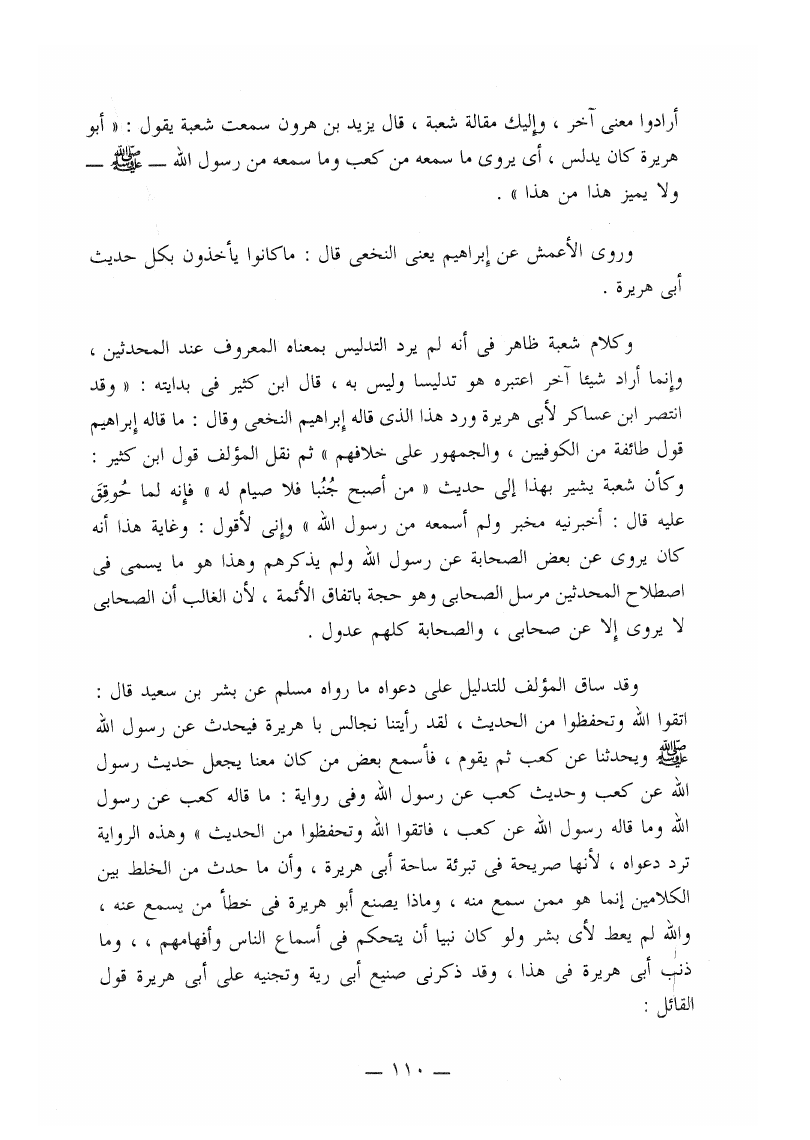 أرادوا معنى آخر ، وإليك مقالة شعبة ، قال يزيد بن هرون سمعت شعبة يقول : « أبو
هريرة كان يدلس ، أى يروى ما سمعه من كعب وما سمعه من رسول الله — ﷺ —
ولا يميز هذا من هذا » .
وروى الأعمش عن إبراهيم يعنى النخعى قال : ماكانوا يأخذون بكل حديث
أبى هريرة .
وكلام شعبة ظاهر فى أنه لم يرد التدليس بمعناه المعروف عند المحدثين ،
وإنما أراد شيئا آخر اعتبره هو تدليسا وليس به ، قال ابن كثير فى بدايته : « وقد
انتصر ابن عساكر لأبى هريرة ورد هذا الذى قاله إبراهيم النخعى وقال : ما قاله إبراهيم
قول طائفة من الكوفيين ، والجمهور على خلافهم » ثم نقل المؤلف قول ابن كثير :
وكأن شعبة يشير بهذا إلى حديث « من أصبح جُنُبا فلا صيام له » فإنه لما حُوقِقَ
عليه قال : أخبرنيه مخبر ولم أسمعه من رسول الله » وإنى لأقول : وغاية هذا أنه
كان يروى عن بعض الصحابة عن رسول الله ولم يذكرهم وهذا هو ما يسمى فى
اصطلاح المحدثين مرسل الصحابى وهو حجة باتفاق الأئمة ، لأن الغالب أن الصحابى
لا يروى إلا عن صحابى ، والصحابة كلهم عدول .
وقد ساق المؤلف للتدليل على دعواه ما رواه مسلم عن بشر بن سعيد قال :
اتقوا الله وتحفظوا من الحديث ، لقد رأيتنا نجالس با هريرة فيحدث عن رسول الله
ﷺ ويحدثنا عن كعب ثم يقوم ، فأسمع بعض من كان معنا يجعل حديث رسول
الله عن كعب وحديث كعب عن رسول الله وفى رواية : ما قاله كعب عن رسول
الله وما قاله رسول الله عن كعب ، فاتقوا الله وتحفظوا من الحديث » وهذه الرواية
ترد دعواه ، لأنها صريحة فى تبرئة ساحة أبى هريرة ، وأن ما حدث من الخلط بين
الكلامين إنما هو ممن سمع منه ، وماذا يصنع أبو هريرة فى خطأ من يسمع عنه ،
والله لم يعط لأى بشر ولو كان نبيا أن يتحكم فى أسماع الناس وأفهامهم ، ، وما
ذنب أبى هريرة فى هذا ، وقد ذكرنى صنيع أبى رية وتجنيه على أبى هريرة قول
القائل :
— ١١٠ —